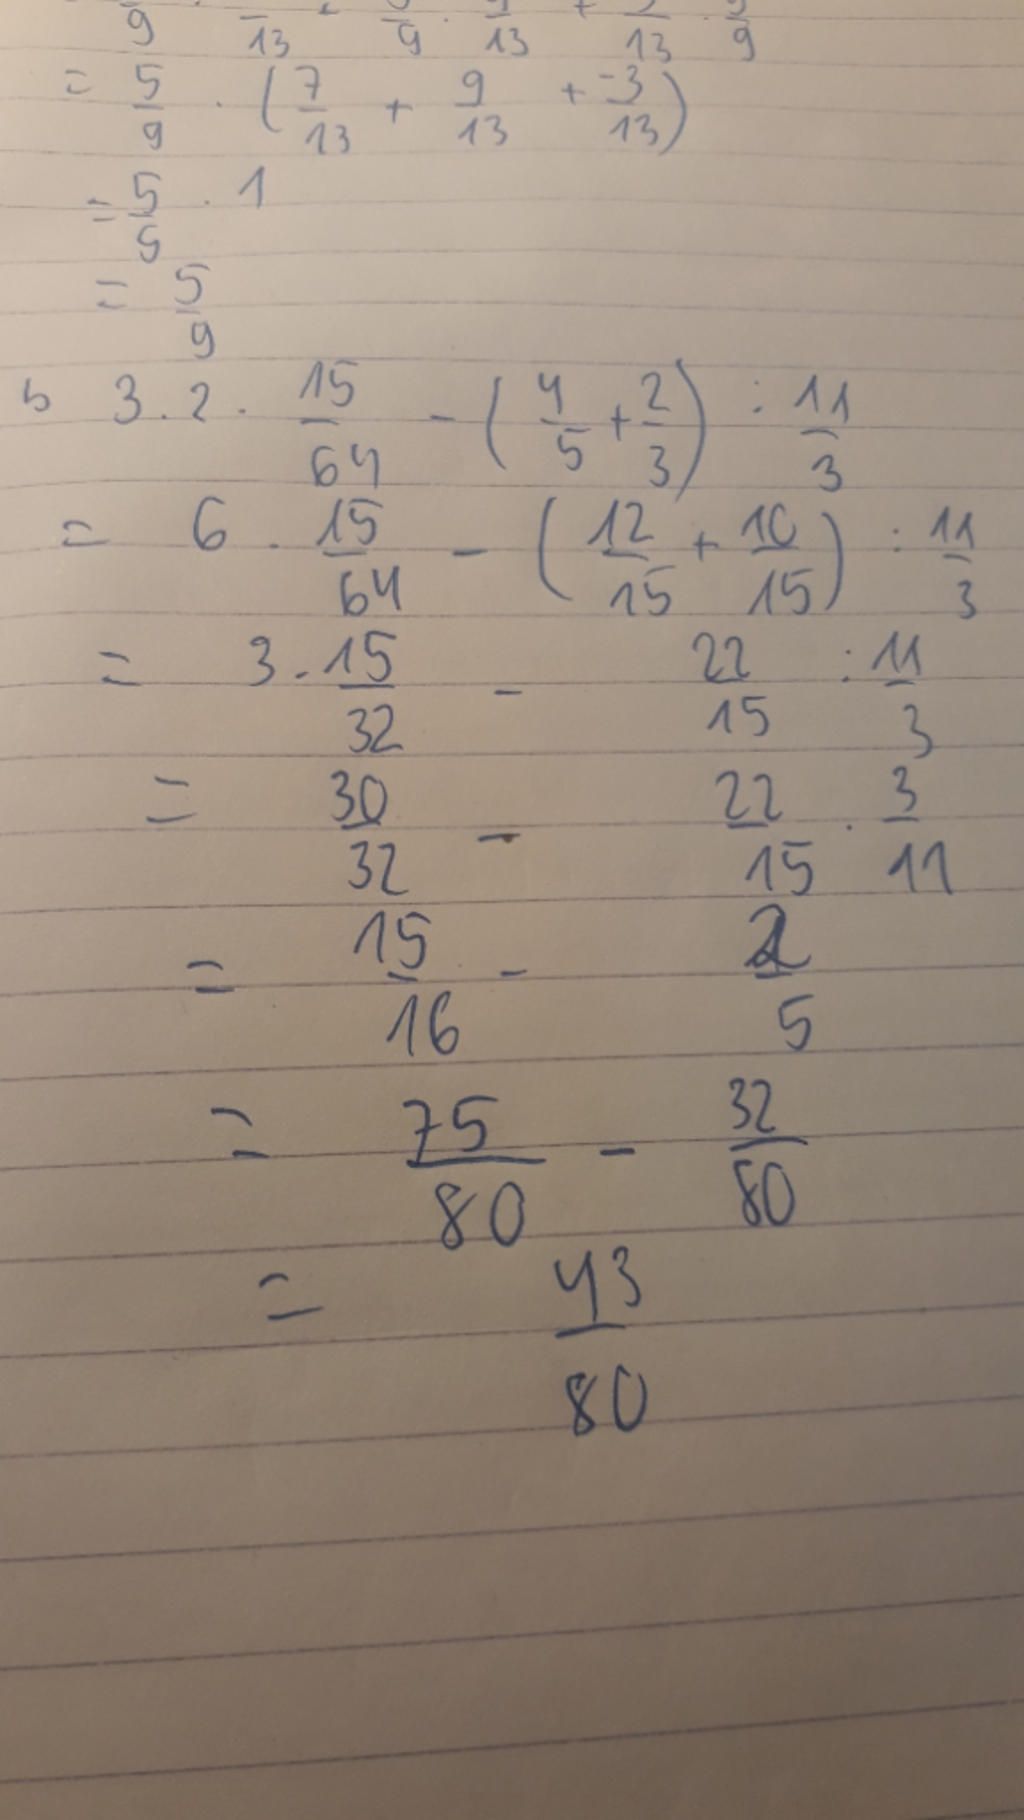 9 13 9 13 13 9
= 5/9 . (7/13 + 9/13 + -3/13)
= 5/9 . 1
= 5/9
b 3.2. 15/64 - (4/5 + 2/3) : 11/3
= 6 . 15/64 - (12/15 + 10/15) : 11/3
= 3 . 15/32 - 22/15 : 11/3
= 30/32 - 22/15 . 3/11
= 15/16 - 2/5
= 75/80 - 32/80
= 43/80